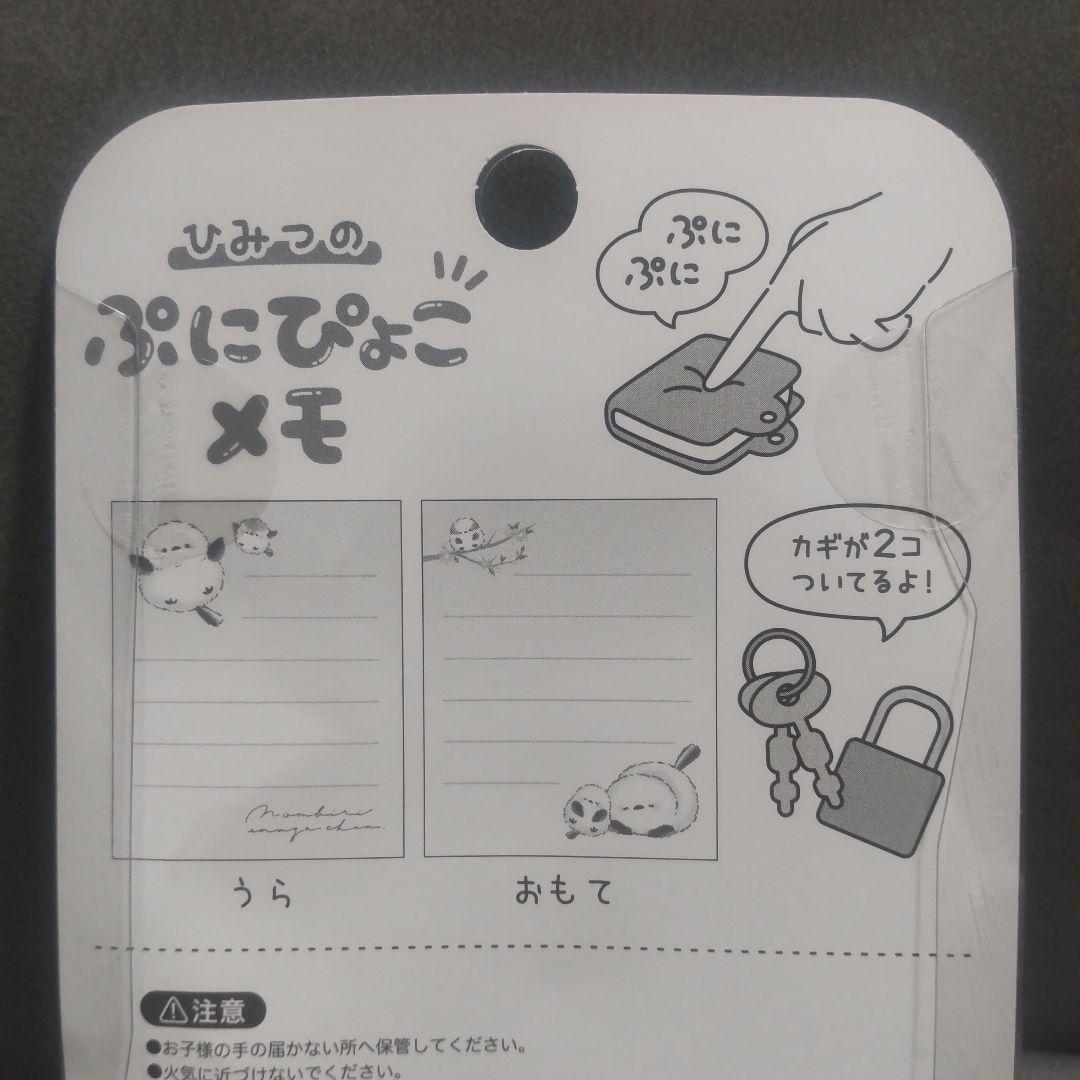 ひみつの
ぷにぴょこ
メモ
ぷに
ぷに
カギが2コ
ついてるよ!
うら
おもて
注意
●お子様の手の届かない所へ保管してください。
●火気に近づけないでください。